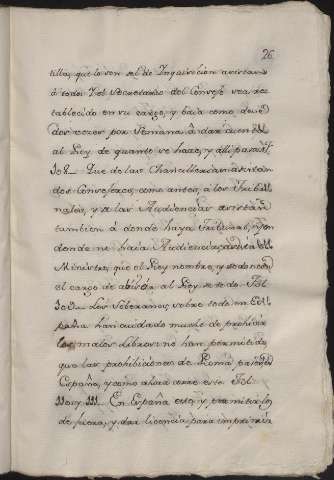 26
tilla, que lo son el de Inquisicion asistan
á todo: Y el Secretario del Consejo sea res
tablecido en su cargo, y baia como dos
dos veces por semana á dar cuenta
al Rey de quanto se hace, y alli para
108. Que de las Chancillerias asistan
dos Consejeros, como antes, a los Tribu
nales, y a las Audiencias asistan
tambien á donde haya Tribunal, y en
donde no haia Audiencia, asista el
Ministro, que el Rey nombre, y a todos
el cargo de al Rey de todo. Fol.
109. Los Soberanos sobre todo en Es
paña han cuidado mucho de prohibir
los malos libros: no han permitido,
que las prohibiciones de Roma pasen á
España, y como ahora corre esto. Fol.
110 y 111. En España esto, y permitirlos
de fuera, y dar licencia para imprimir